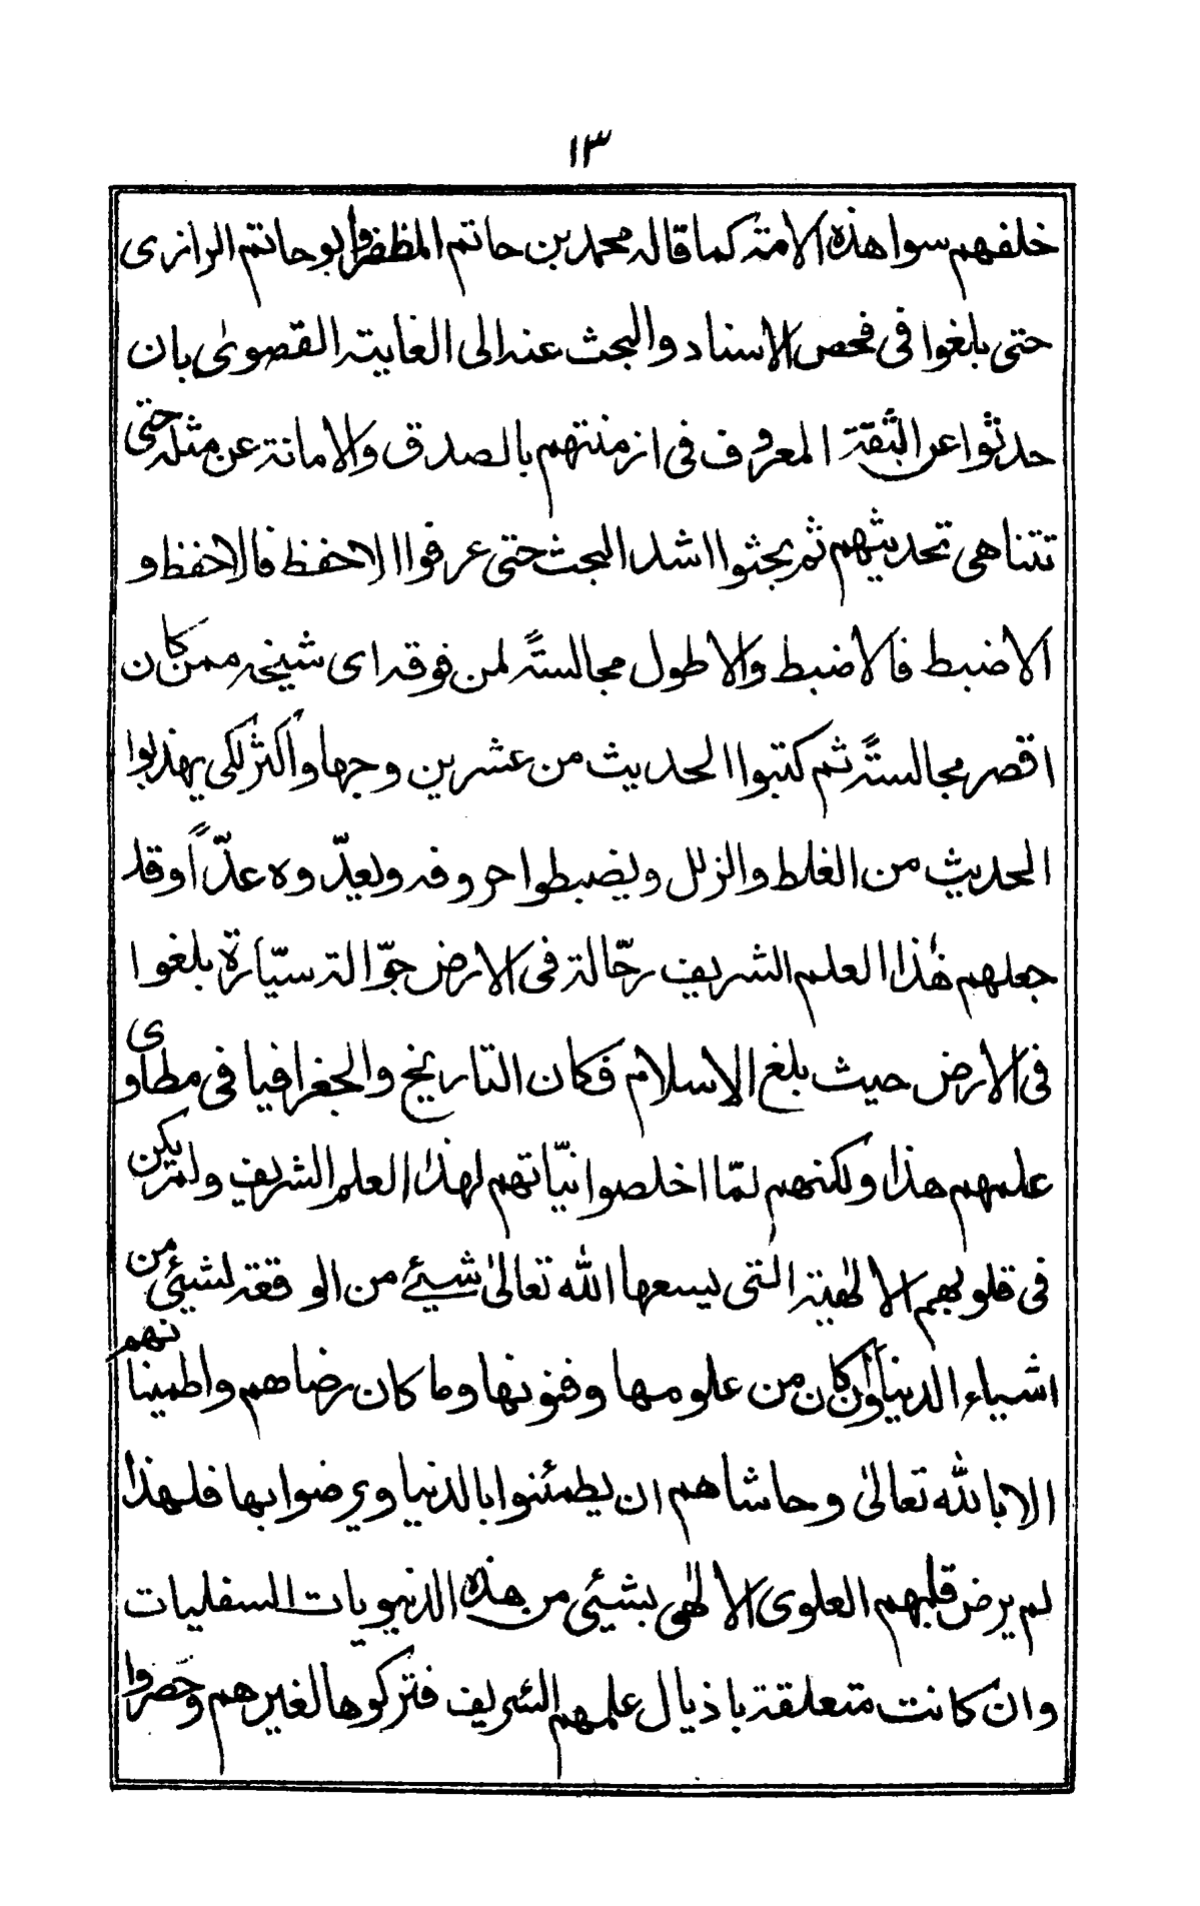 ١٣
خلفهم سوا هذه الامة كما قاله محمد بن حاتم المظفر وابو حاتم الرازى
حتى بلغوا فى فحص الاسناد والبحث عنه الى الغاية القصوىٰ بان
حدثوا عن الثقة المعروف فى ازمنتهم بالصدق والامانة عن مثله حتى
تتناهى تحديثهم ثم بحثوا اشد البحث حتى عرفوا الاحفظ فالاحفظ و
الاضبط فالاضبط والاطول مجالسةً لمن فوقه اى شيخه ممن كان
اقصر مجالسةً ثم كتبوا الحديث من عشرين وجها واكثر لكى يهذبوا
الحديث من الغلط والزلل ويضبطوا حروفه ويعدّوه عدّاً وقد
جعلهم هٰذا العلم الشريف رحّالة فى الارض جوّالة سيّارة بلغوا
فى الارض حيث بلغ الاسلام فكان التاريخ والجغرافيا فى مطاوى
علمهم هذا ولكنهم لمّا اخلصوا نيّاتهم لهذا العلم الشريف ولم يكن
فى قلوبهم الالٰهية التى يسعها الله تعالىٰ شيئے من الوقعة لشيئى من
اشياء الدنيا وان كان من علومها وفنونها وما كان رضاهم واطمينانهم
الا بالله تعالىٰ وحاشاهم ان يطمئنوا بالدنيا ويرضوا بها فلهذا
لم يرض قلبهم العلوى الالٰهى بشيئى من هذه الدنيويات السفليات
وان كانت متعلقة باذيال علمهم الشريف فتركوها لغيرهم وحصروا